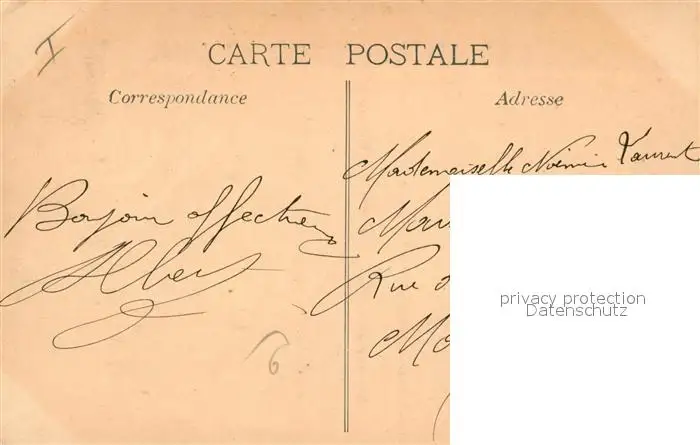 I
CARTE POSTALE
Correspondance
Adresse
Bonjour affectueux
Albert
6
Mademoiselle Noémie Laurent
Rue
privacy protection
Datenschutz